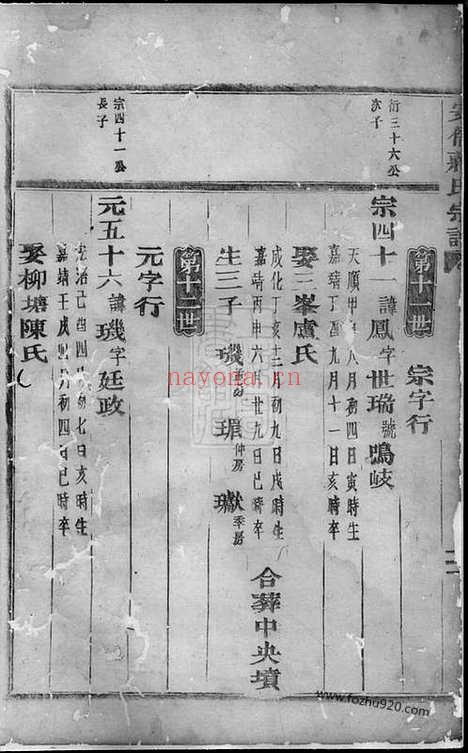 第十一世
宗字行
衍三十六公
次子
宗四十一諱鳳字世瑞號鳴岐
天順甲申八月初四日寅時生
嘉靖丁亥九月十一日亥時卒
娶三峯盧氏
成化丁亥三月初九日戌時生
嘉靖丙申六月廿九日巳時卒
合葬中央墳
生三子
璣 瑂仲房 瓛季房
第十二世
元字行
宗四十一公
長子
元五十六諱璣字廷政
弘治己酉四月初七日亥時生
嘉靖壬戌四月初四日巳時卒
娶柳塘陳氏
nayona.cn
www.fozhu920.com